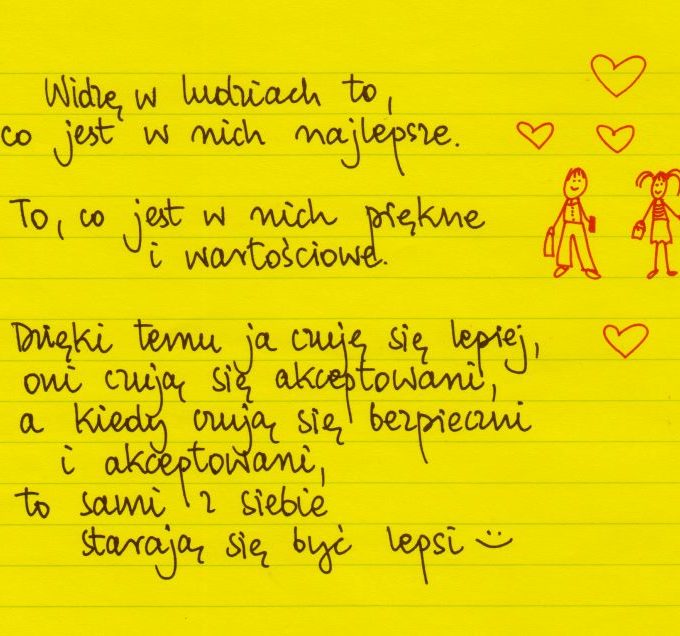 Widzę w ludziach to,
co jest w nich najlepsze.
To, co jest w nich piękne
i wartościowe.
Dzięki temu ja czuję się lepiej,
oni czują się akceptowani,
a kiedy czują się bezpieczni
i akceptowani,
to sami z siebie
starają się być lepsi :)